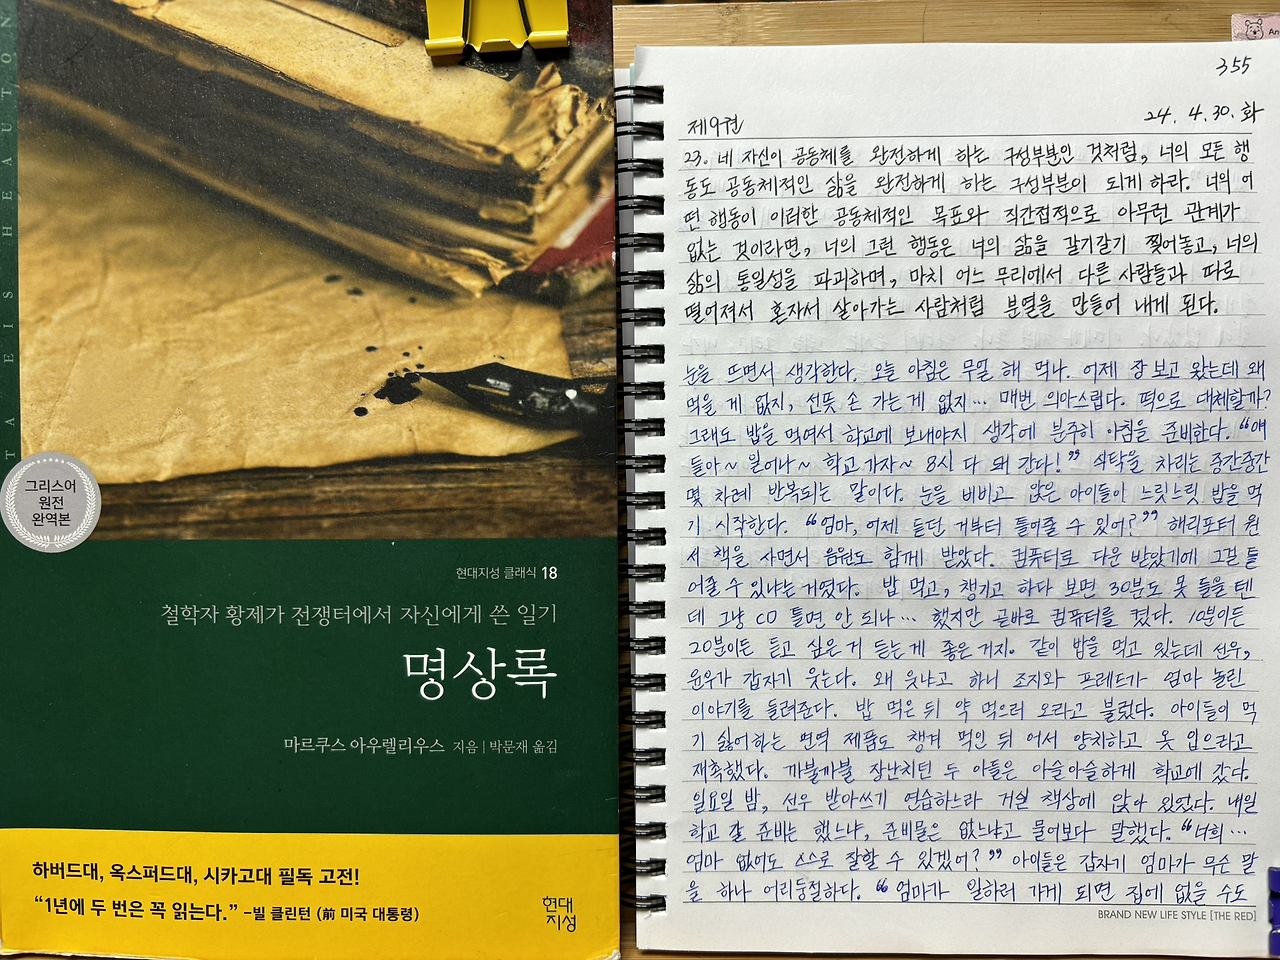 TA EIS HEAUTON
그리스어
원전
완역본
현대지성 클래식 18
철학자 황제가 전쟁터에서 자신에게 쓴 일기
명상록
마르쿠스 아우렐리우스 지음 | 박문재 옮김
하버드대, 옥스퍼드대, 시카고대 필독 고전!
“1년에 두 번은 꼭 읽는다.” –빌 클린턴 (前 미국 대통령)
현대
지성
355
제9권
24. 4. 30. 화
23. 네 자신이 공동체를 완전하게 하는 구성부분인 것처럼, 너의 모든 행
동도 공동체적인 삶을 완전하게 하는 구성부분이 되게 하라. 너의 어
떤 행동이 이러한 공동체적인 목표와 직간접적으로 아무런 관계가
없는 것이라면, 너의 그런 행동은 너의 삶을 갈기갈기 찢어놓고, 너의
삶의 통일성을 파괴하며, 마치 어느 무리에서 다른 사람들과 따로
떨어져서 혼자서 살아가는 사람처럼 분열을 만들어 내게 된다.
눈을 뜨면서 생각한다. 오늘 아침은 무얼 해 먹나. 어제 장 보고 왔는데 왜
먹을 게 없지, 선뜻 손 가는 게 없지… 매번 의아스럽다. 떡으로 대체할까?
그래도 밥을 먹여서 학교에 보내야지 생각에 분주히 아침을 준비한다. “얘
들아~ 일어나~ 학교 가자~ 8시 다 돼 간다!” 식탁을 차리는 중간중간
몇 차례 반복되는 말이다. 눈을 비비고 앉은 아이들이 느릿느릿 밥을 먹
기 시작한다. “엄마, 어제 듣던 거부터 틀어줄 수 있어?” 해리포터 원
서 책을 사면서 음원도 함께 받았다. 컴퓨터로 다운 받았기에 그걸 틀
어줄 수 있냐는 거였다. 밥 먹고, 챙기고 하다 보면 30분도 못 들을 텐
데 그냥 CD 틀면 안 되나… 했지만 곧바로 컴퓨터를 켰다. 10분이든
20분이든 듣고 싶은 거 듣는 게 좋은 거지. 같이 밥을 먹고 있는데 선우,
윤우가 갑자기 웃는다. 왜 웃냐고 하니 조지와 프레드가 엄마 놀린
이야기를 들려준다. 밥 먹은 뒤 약 먹으러 오라고 불렀다. 아이들이 먹
기 싫어하는 면역 제품도 챙겨 먹인 뒤 어서 양치하고 옷 입으라고
재촉했다. 까불까불 장난치던 두 아들은 아슬아슬하게 학교에 갔다.
일요일 밤, 선우 받아쓰기 연습하느라 거실 책상에 앉아 있었다. 내일
학교 갈 준비는 했느냐, 준비물은 없느냐고 물어보다 말했다. “너희…
엄마 없어도 스스로 잘할 수 있겠어?” 아이들은 갑자기 엄마가 무슨 말
을 하나 어리둥절하다. “엄마가 일하러 가게 되면 집에 없을 수도
BRAND NEW LIFE STYLE [THE RED]